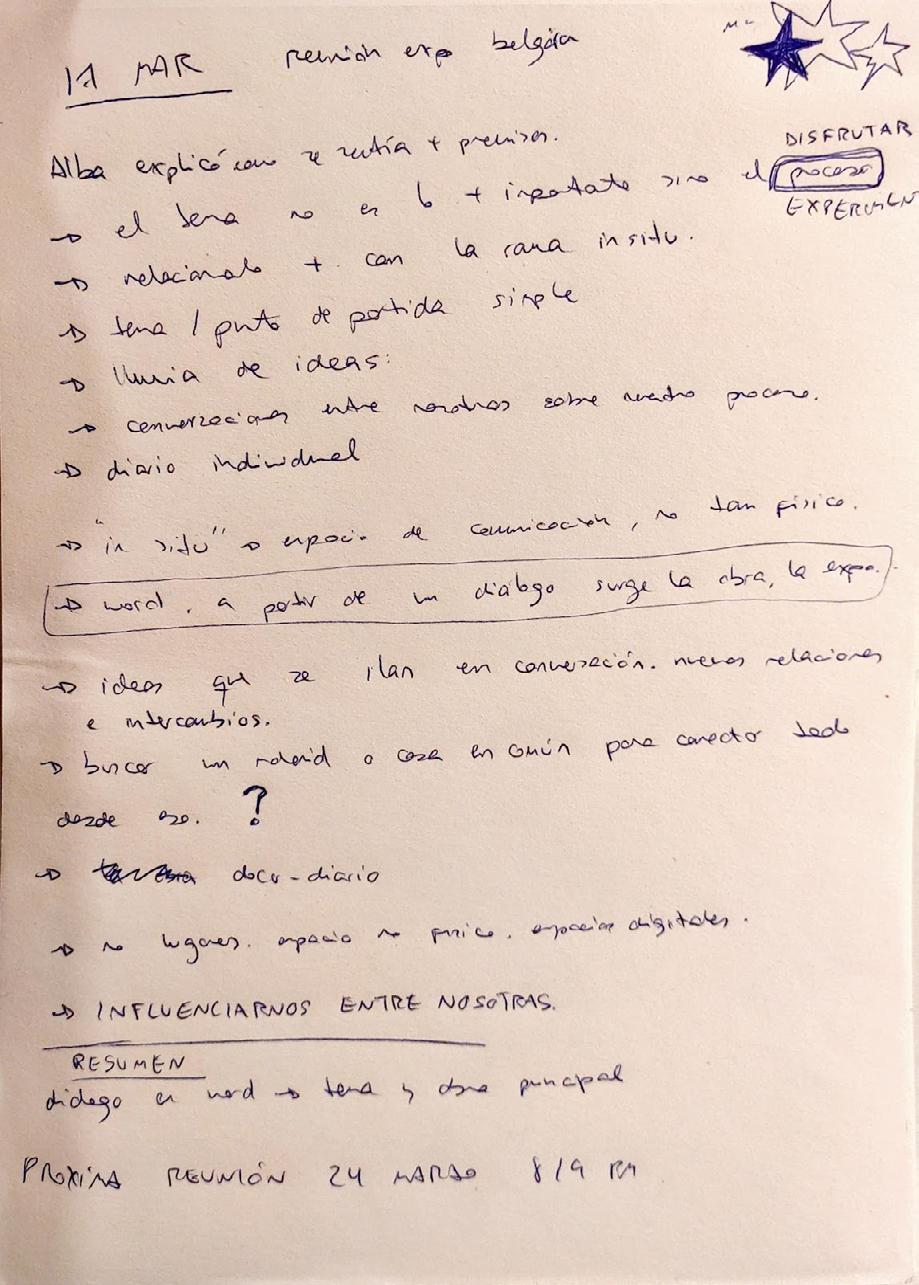 11 MAR reunión exp belgica
Alba explicó como se sentía + premisas.
DISFRUTAR
→ el tema no es lo + importate sino el proceso
EXPERIMEN
→ relacionalo + con la rama in situ.
→ tema / punto de partida simple
→ lluvia de ideas:
→ conversaciones entre nosotras sobre nuestro proceso.
→ diario individual
→ "in situ" → espacio de comunicación, no tan físico.
→ word, a partir de un diálogo surge la obra, la expo.
→ ideas que se ilan en conversación. nuevas relaciones
e intercambios.
→ buscar un material o cosa en común para conector todo
desde eso. ?
→ docu-diario
→ no lugares. espacio no físico. espacios digitales.
→ INFLUENCIARNOS ENTRE NOSOTRAS.
RESUMEN
diálogo en word → tema y obra principal
PROXIMA REUNIÓN 24 MARZO 8/9 PM